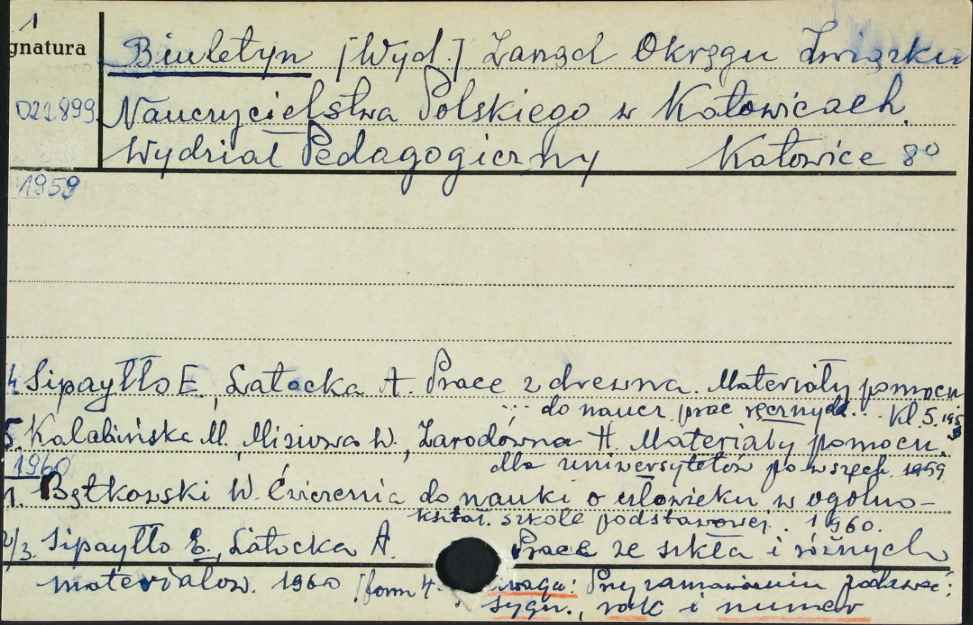 1
gnatura Biuletyn [Wyd.] Zarząd Okręgu Związku
022.899 Nauczycielstwa Polskiego w Katowicach.
Wydział Pedagogiczny Katowice 8°
1959
4 Sipayłło E., Łatocka A. Prace z drewna. Materiały pomocn.
... do naucz. prac ręcznych. Kl. 5.
5. Kalabińska M., W., Zarodówna H. Materiały pomocn.
dla uniwersytetów powszech. 1959
1960
1. Bątkowski W. Ćwiczenia do nauki o człowieku w ogólno-
kształ. szkole podstawowej. 1960.
2/3. Sipayłło E., Łatocka A. Prace ze szkła i różnych
materiałów. 1960 [form 4° Uwaga: Przy zamawianiu podawać:
sygn., rok i numer